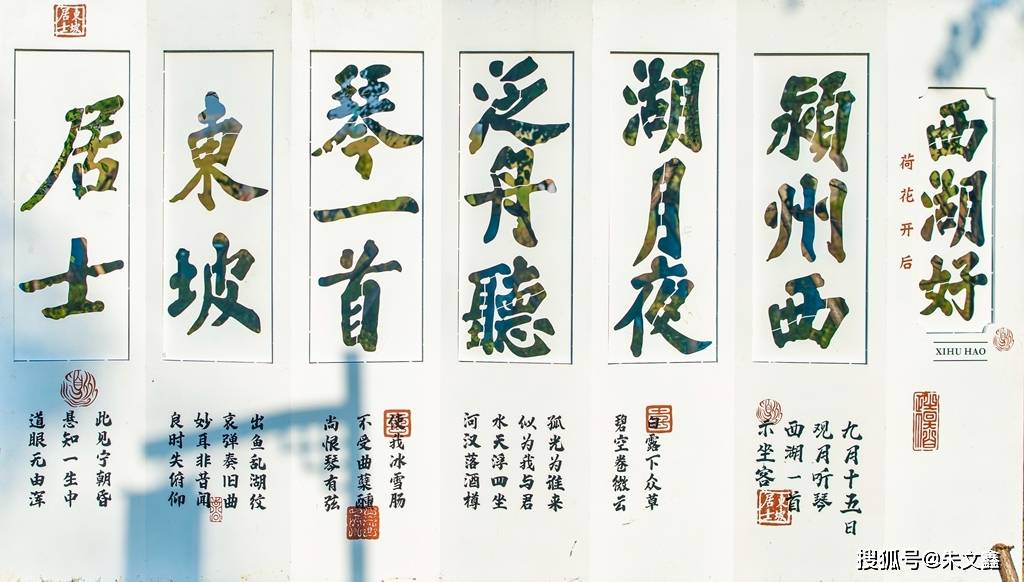 西湖好
荷花开后
XIHU HAO
潁州西
湖月夜
泛舟聽
琴一首
東坡
居士
九月十五日
观月听琴
西湖一首
示坐客
白露下众草
碧空卷微云
孤光为谁来
似为我与君
水天浮四坐
河汉落酒樽
使我冰雪肠
不受曲蘖醺
尚恨琴有弦
出鱼乱湖纹
哀弹奏旧曲
妙耳非昔闻
良时失俯仰
此见宁朝昏
悬知一生中
道眼无由浑
東坡居士
東坡居士
搜狐号@朱文鑫